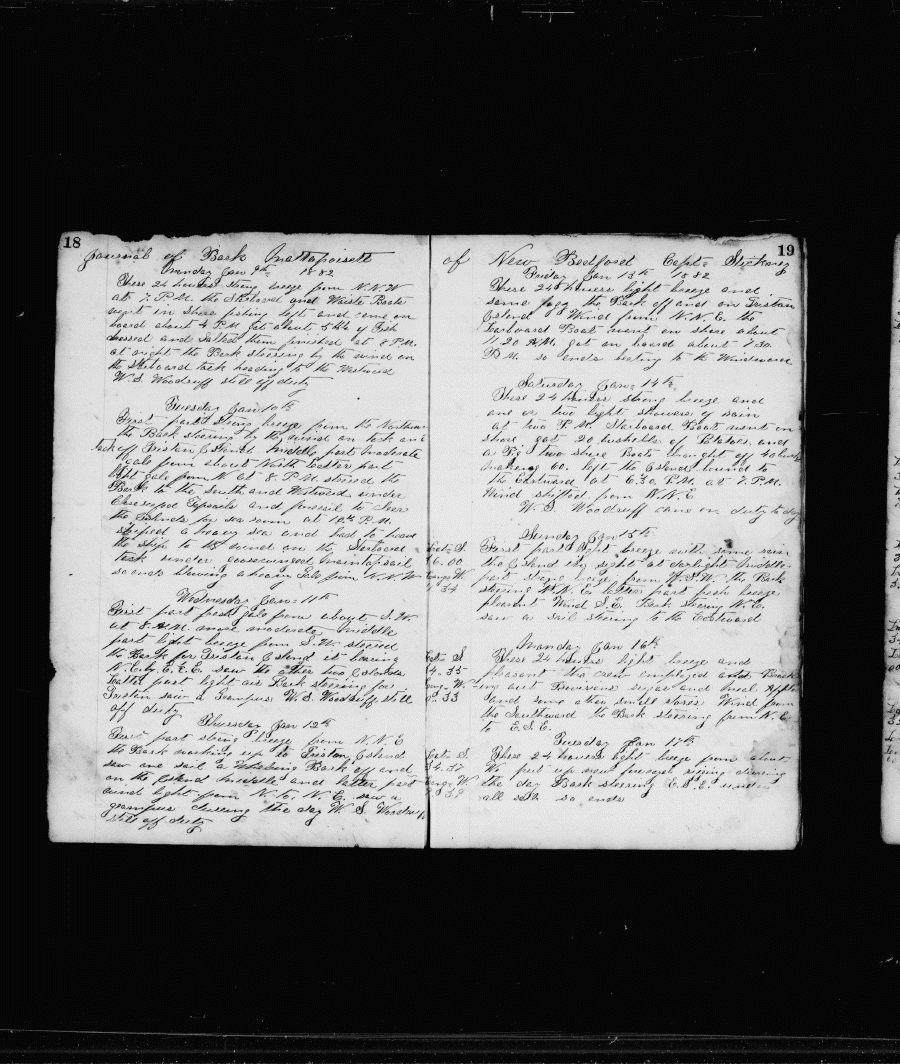 18
Journal of Bark Mattapoisett
Monday Jan 9th 1882
These 24 hours strong breeze from N.N.W
at 7. P.M. the Starboard and Waist Boats
went in shore fishing left and come on
board about 4 P.M got about 5 of Fish
dressed and salted them finished at 8 P.M.
at night the Bark steering by the wind on
the Starboard tack heading to the Westward
W. S. Woodruff still off duty
Tuesday Jan 10th
First part strong breeze from the Northward
the Bark steering by the wind on tack and
tack off Tristan Island Middle part moderate
gale from about North Latter part
gale from N. at 8. P.M. steered the
Bark to the South and Westward under
Close reefed Topsails and foresail to clear
the Islands for sea room at 10th P.M.
shiped a heavy sea and had to heave
the ship to the wind on the Starboard
tack under goosewinged maintopsail
so ends blowing a heavy Gale from N.N.W
Wednesday Jan 11th
First part fresh gale from about S.W.
at 8. A.M. more moderate middle
part light breeze from S.W. steered
the Bark for Tristan Island it bearing
N.E. by E. & E. saw the other two Islands
Latter part light air Bark steering for
Tristan saw a Grampus W. S. Woodruff still
off duty
Thursday Jan 12th
First part strong breeze from N.N.E
the Bark working up to Tristan Island
saw one sail a Whaling Bark off and
on the Island Middle and latter part
wind light from N. E. N. E. saw a
grampus during the day W. S. Woodruff
still off duty
19
of New Bedford Capt.
Friday Jan 13th 1882
These 24 hours light breeze and
some fog the Bark off and on Tristan
Island Wind from N.N.E. the
Larboard Boat went on shore about
11.20 A.M. got on board about 7.30
P.M. so ends beating to the Windward
Saturday Jan 14th
These 24 hours strong breeze and
one or two light showers of rain
at two P.M. Starboard Boat went on
shore got 20 bushels of Potatoes and
a Pig two shore Boats brought off 40 bushels
making 60. left the Island bound to
the Eastward at 6.30 P.M. at 7. P.M.
Wind shifted from N.N.E
W. S. Woodruff came on duty to day
Sunday Jan 15th
First part light breeze with some rain
the Island in sight at daylight Middle
part strong breeze from W.S.W. the Bark
steering N.N.E. latter part fresh breeze
pleasant Wind S.E. Bark steering N.E.
saw a sail steering to the Eastward
Lat. S.
6.00
Long. W.
34
Monday Jan 16th
These 24 hours light breeze and
pleasant the crew employed and Break
ing out Provisions sugar and meal Apples
and some other small stores Wind from
the Southward the Bark steering from N.E.
to E.S.E.
Lat. S
4.35
Long. W.
33
Tuesday Jan 17th
These 24 hours light breeze from about
W. put up new foresail rigging during
the day Bark steering E.S.E. under
all sail so ends
Lat. S.
34.
Long. W.